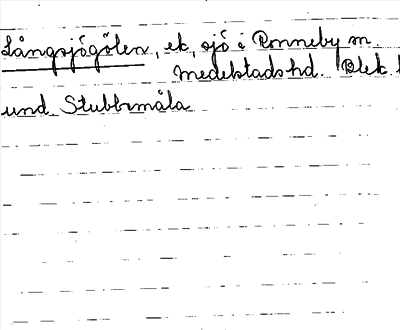 Långsjögölen, ek, sjö i Ronneby sn
Medelstads hd. Blek. l
und. Stubbamåla